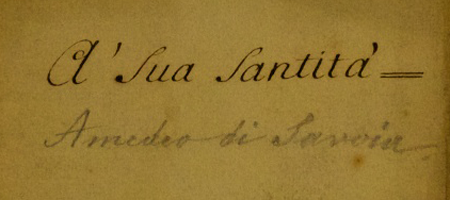 A' Sua Santità =
Amedeo di Savoia.